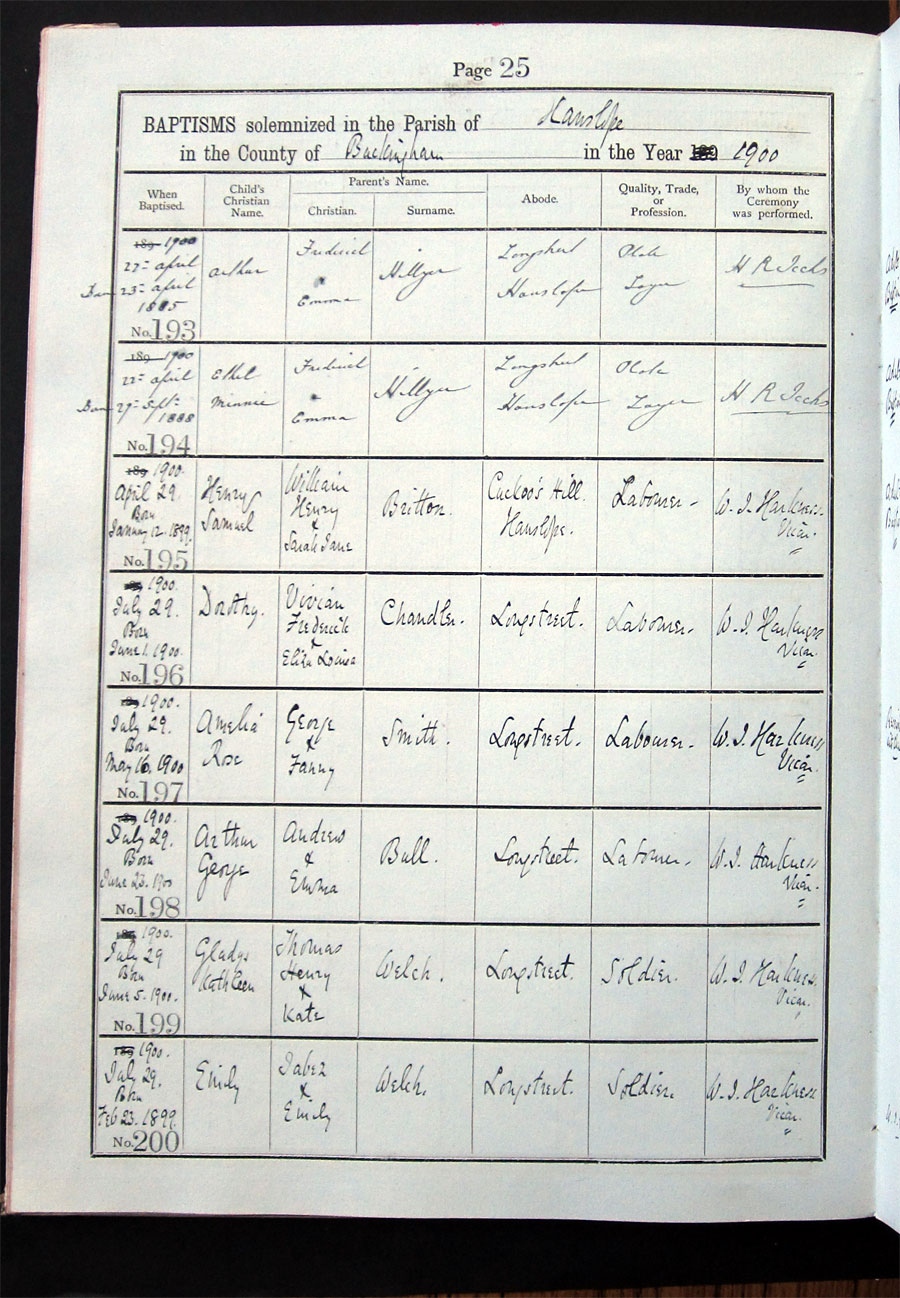 Page 25
BAPTISMS solemnized in the Parish of Hanslope
in the County of Buckingham in the Year 189 1900
When Baptised. Child's Christian Name. Parent's Name. Christian. Surname. Abode. Quality, Trade, or Profession. By whom the Ceremony was performed.
189 1900
22nd april
Born 23rd april
1885
No. 193
Arthur
Frederick
&
Emma
Hillyer
Longstreet
Hanslope
H R Jecks
189 1900
22nd april
Born 29th Sept
1888
No. 194
Ethel
Minnie
Frederick
&
Emma
Hillyer
Longstreet
Hanslope
H R Jecks
189 1900.
April 29.
Born
January 12. 1899.
No. 195
Henry
Samuel
William
Henry
&
Sarah Jane
Britton.
Cuckoo's Hill
Hanslope.
Labourer -
W. J. Harkness
Vicar.
1900.
July 29.
Born
June 1. 1900.
No. 196
Dorothy.
Vivian
Frederick
&
Eliza Louisa
Chandler.
Longstreet.
Labourer.
W. J. Harkness
Vicar.
189 1900.
July 29.
Born
May 16. 1900
No. 197
Amelia
Rose
George
&
Fanny
Smith.
Longstreet.
Labourer.
W. J. Harkness
Vicar.
189 1900.
July 29.
Born
June 23. 1900
No. 198
Arthur
George
Andrew
&
Emma
Bull.
Longstreet.
Labourer.
W. J. Harkness
Vicar.
189 1900.
July 29
Born
June 5. 1900.
No. 199
Gladys
Kathleen
Thomas
Henry
&
Kate
Welch.
Longstreet.
Soldier.
W. J. Harkness.
Vicar.
189 1900.
July 29.
Born
Feb 23. 1899.
No. 200
Emily
Jabez
&
Emily
Welch.
Longstreet.
Soldier.
W. J. Harkness
Vicar.